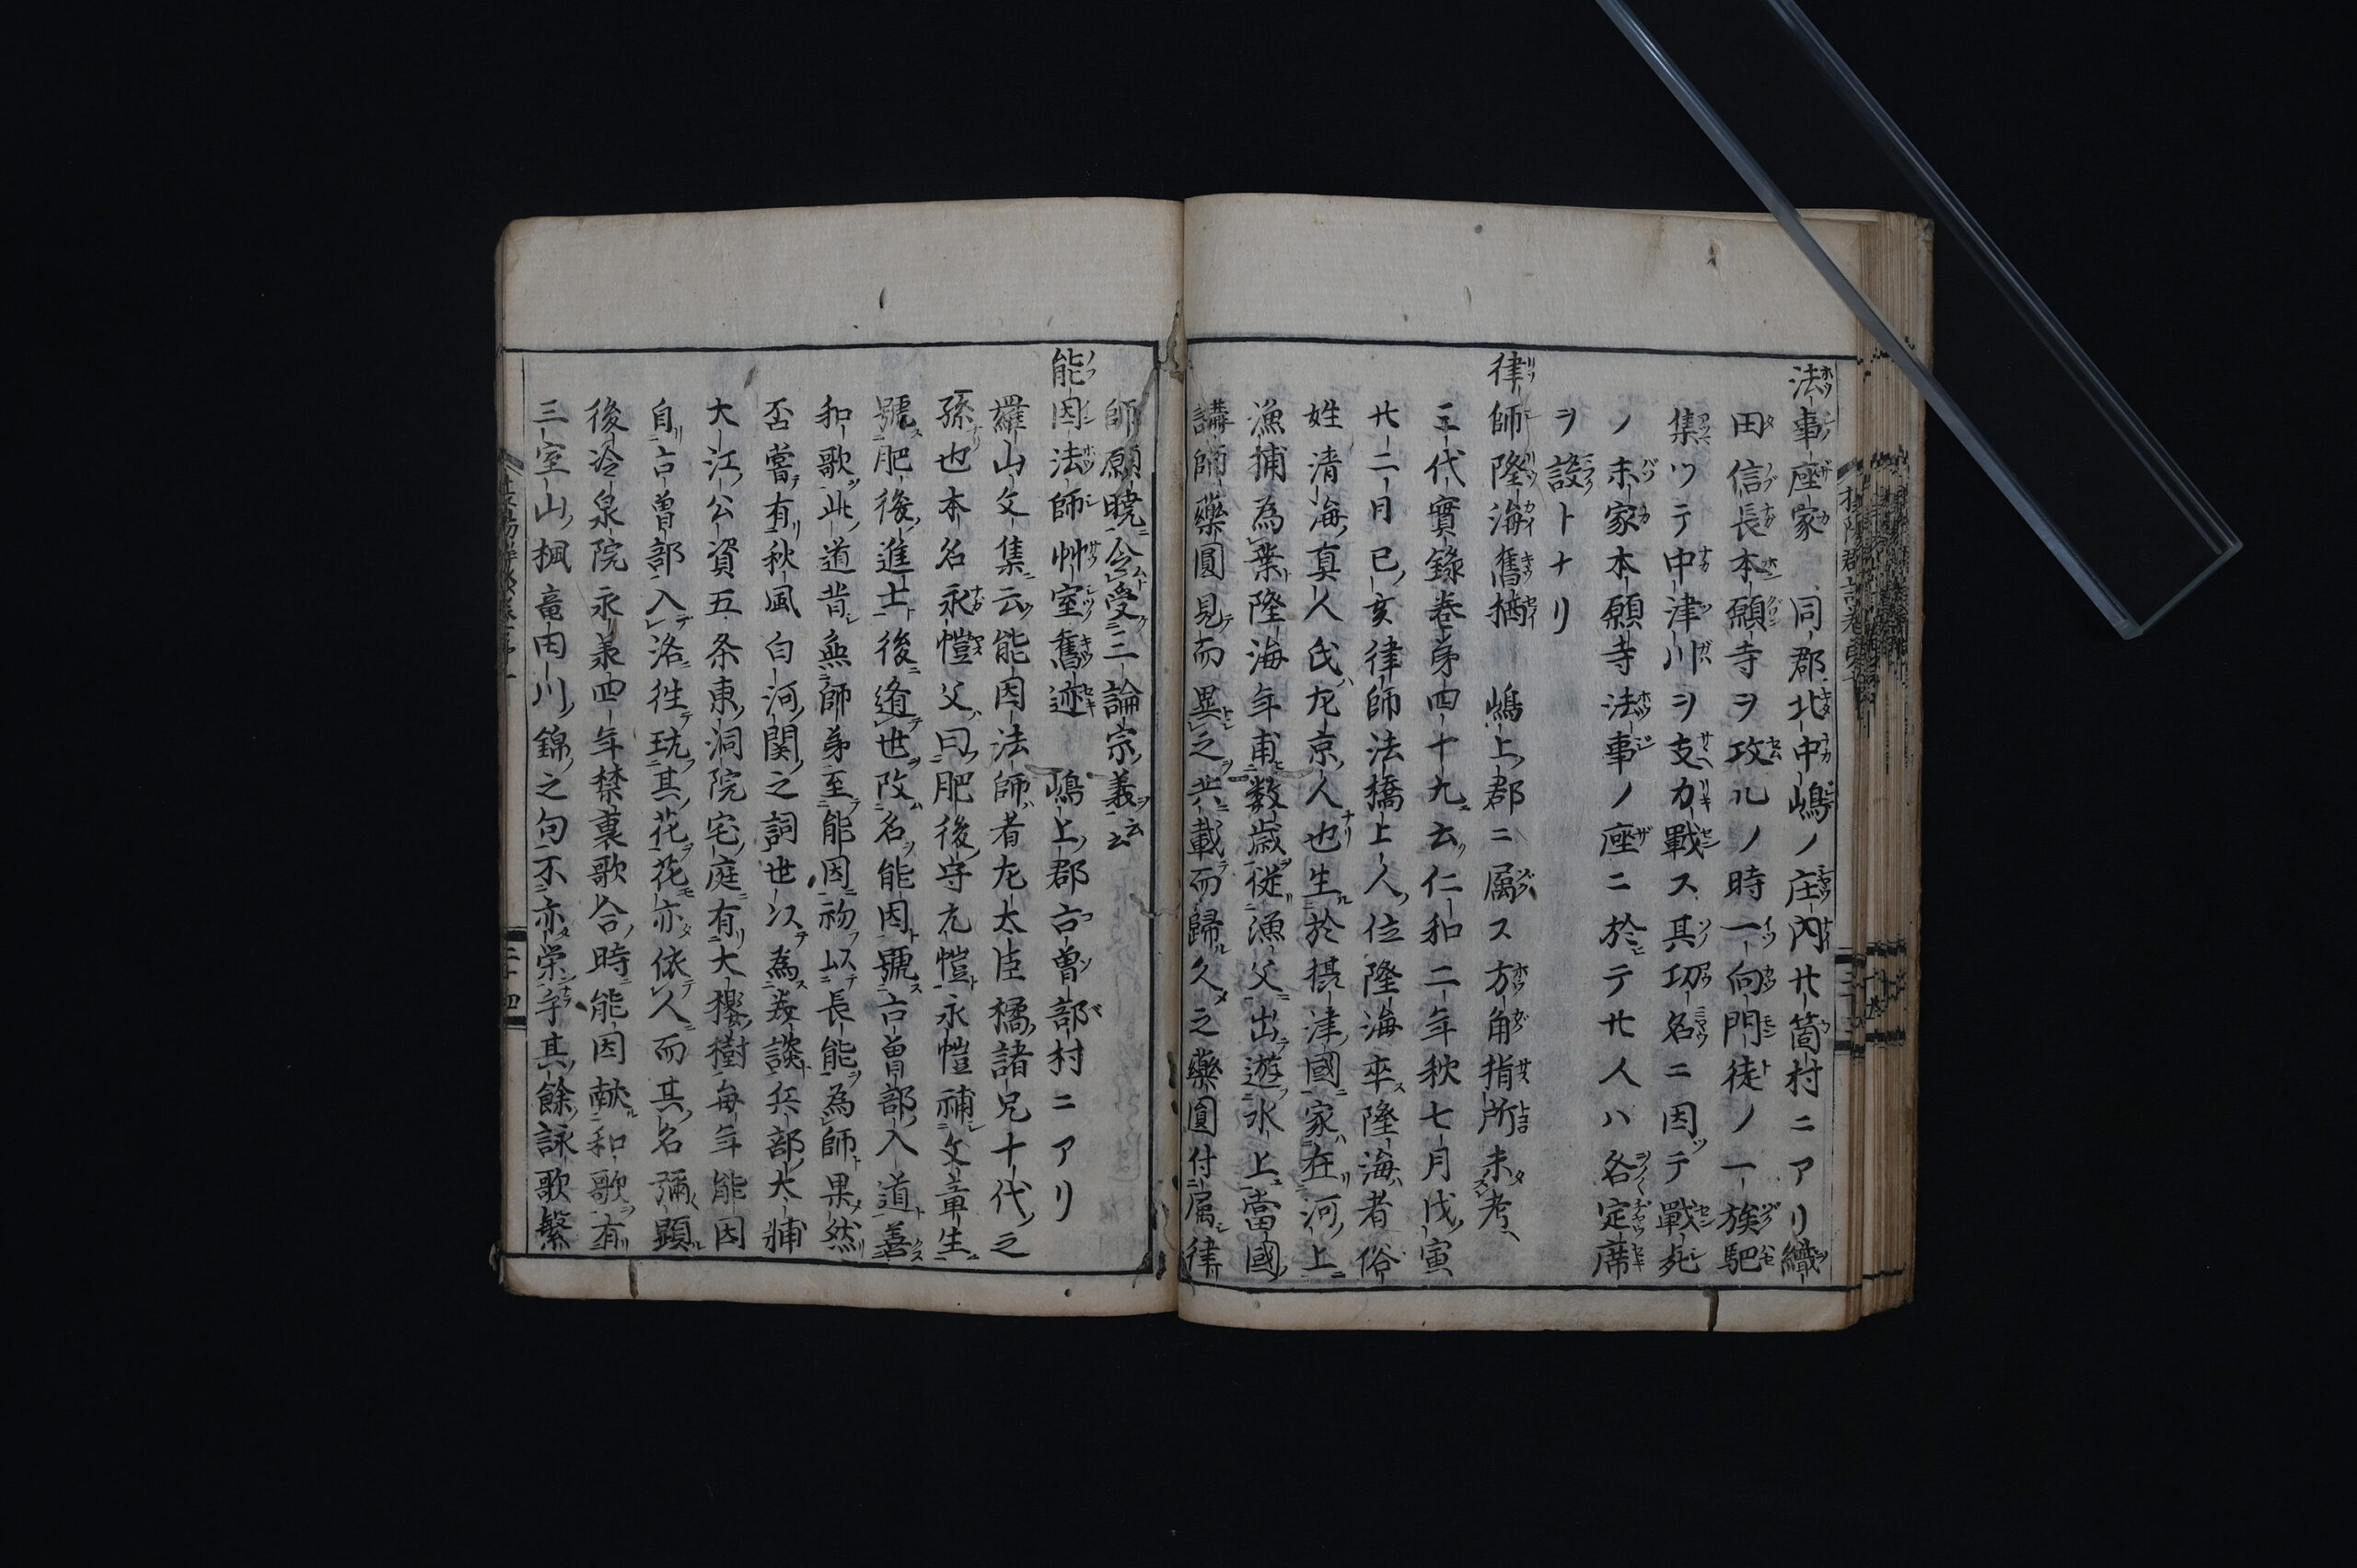 法事座家　同郡北中嶋ノ庄内廿箇村ニアリ織
田信長本願寺ヲ攻ルノ時一向門徒ノ一族馳
集ツテ中津川ヲ支力戰ス其功名ニ因テ戰死
ノ末家本願寺法事ノ座ニ於テ廿人ハ各定席
ヲ設トナリ
律師隆海舊栖　嶋上郡ニ属ス方角指所未考
三代實錄卷第四十九云仁和二年秋七月戊寅
廿二月己亥律師法橋上人位隆海卒隆海者俗
姓清海真人氏左京人也生於摂津國家在河上
漁捕為業隆海年甫数歳従漁父出遊水上當國
講師藥圓見而異之共載而歸久之藥圓付属律
師願曉令受三論宗義云云
能因法師艸室舊迹　嶋上郡古曽部村ニアリ
羅山文集云能因法師者左大臣橘諸兄十代之
孫也本名永愷父曰肥後守元愷永愷補文章生
號肥後進士後遁世改名能因號古曽部入道善
和歌此道昔無師弟至能因初以長能為師果然
否嘗有秋風白河関之詞世以為美談兵部大輔
大江公資五条東洞院宅庭有大櫻樹毎年能因
自古曽部入洛徃玩其花花亦依人而其名彌顕
後冷泉院永承四年禁裏歌合時能因献和歌有
三室山楓竜田川錦之句不亦栄乎其餘詠歌繁